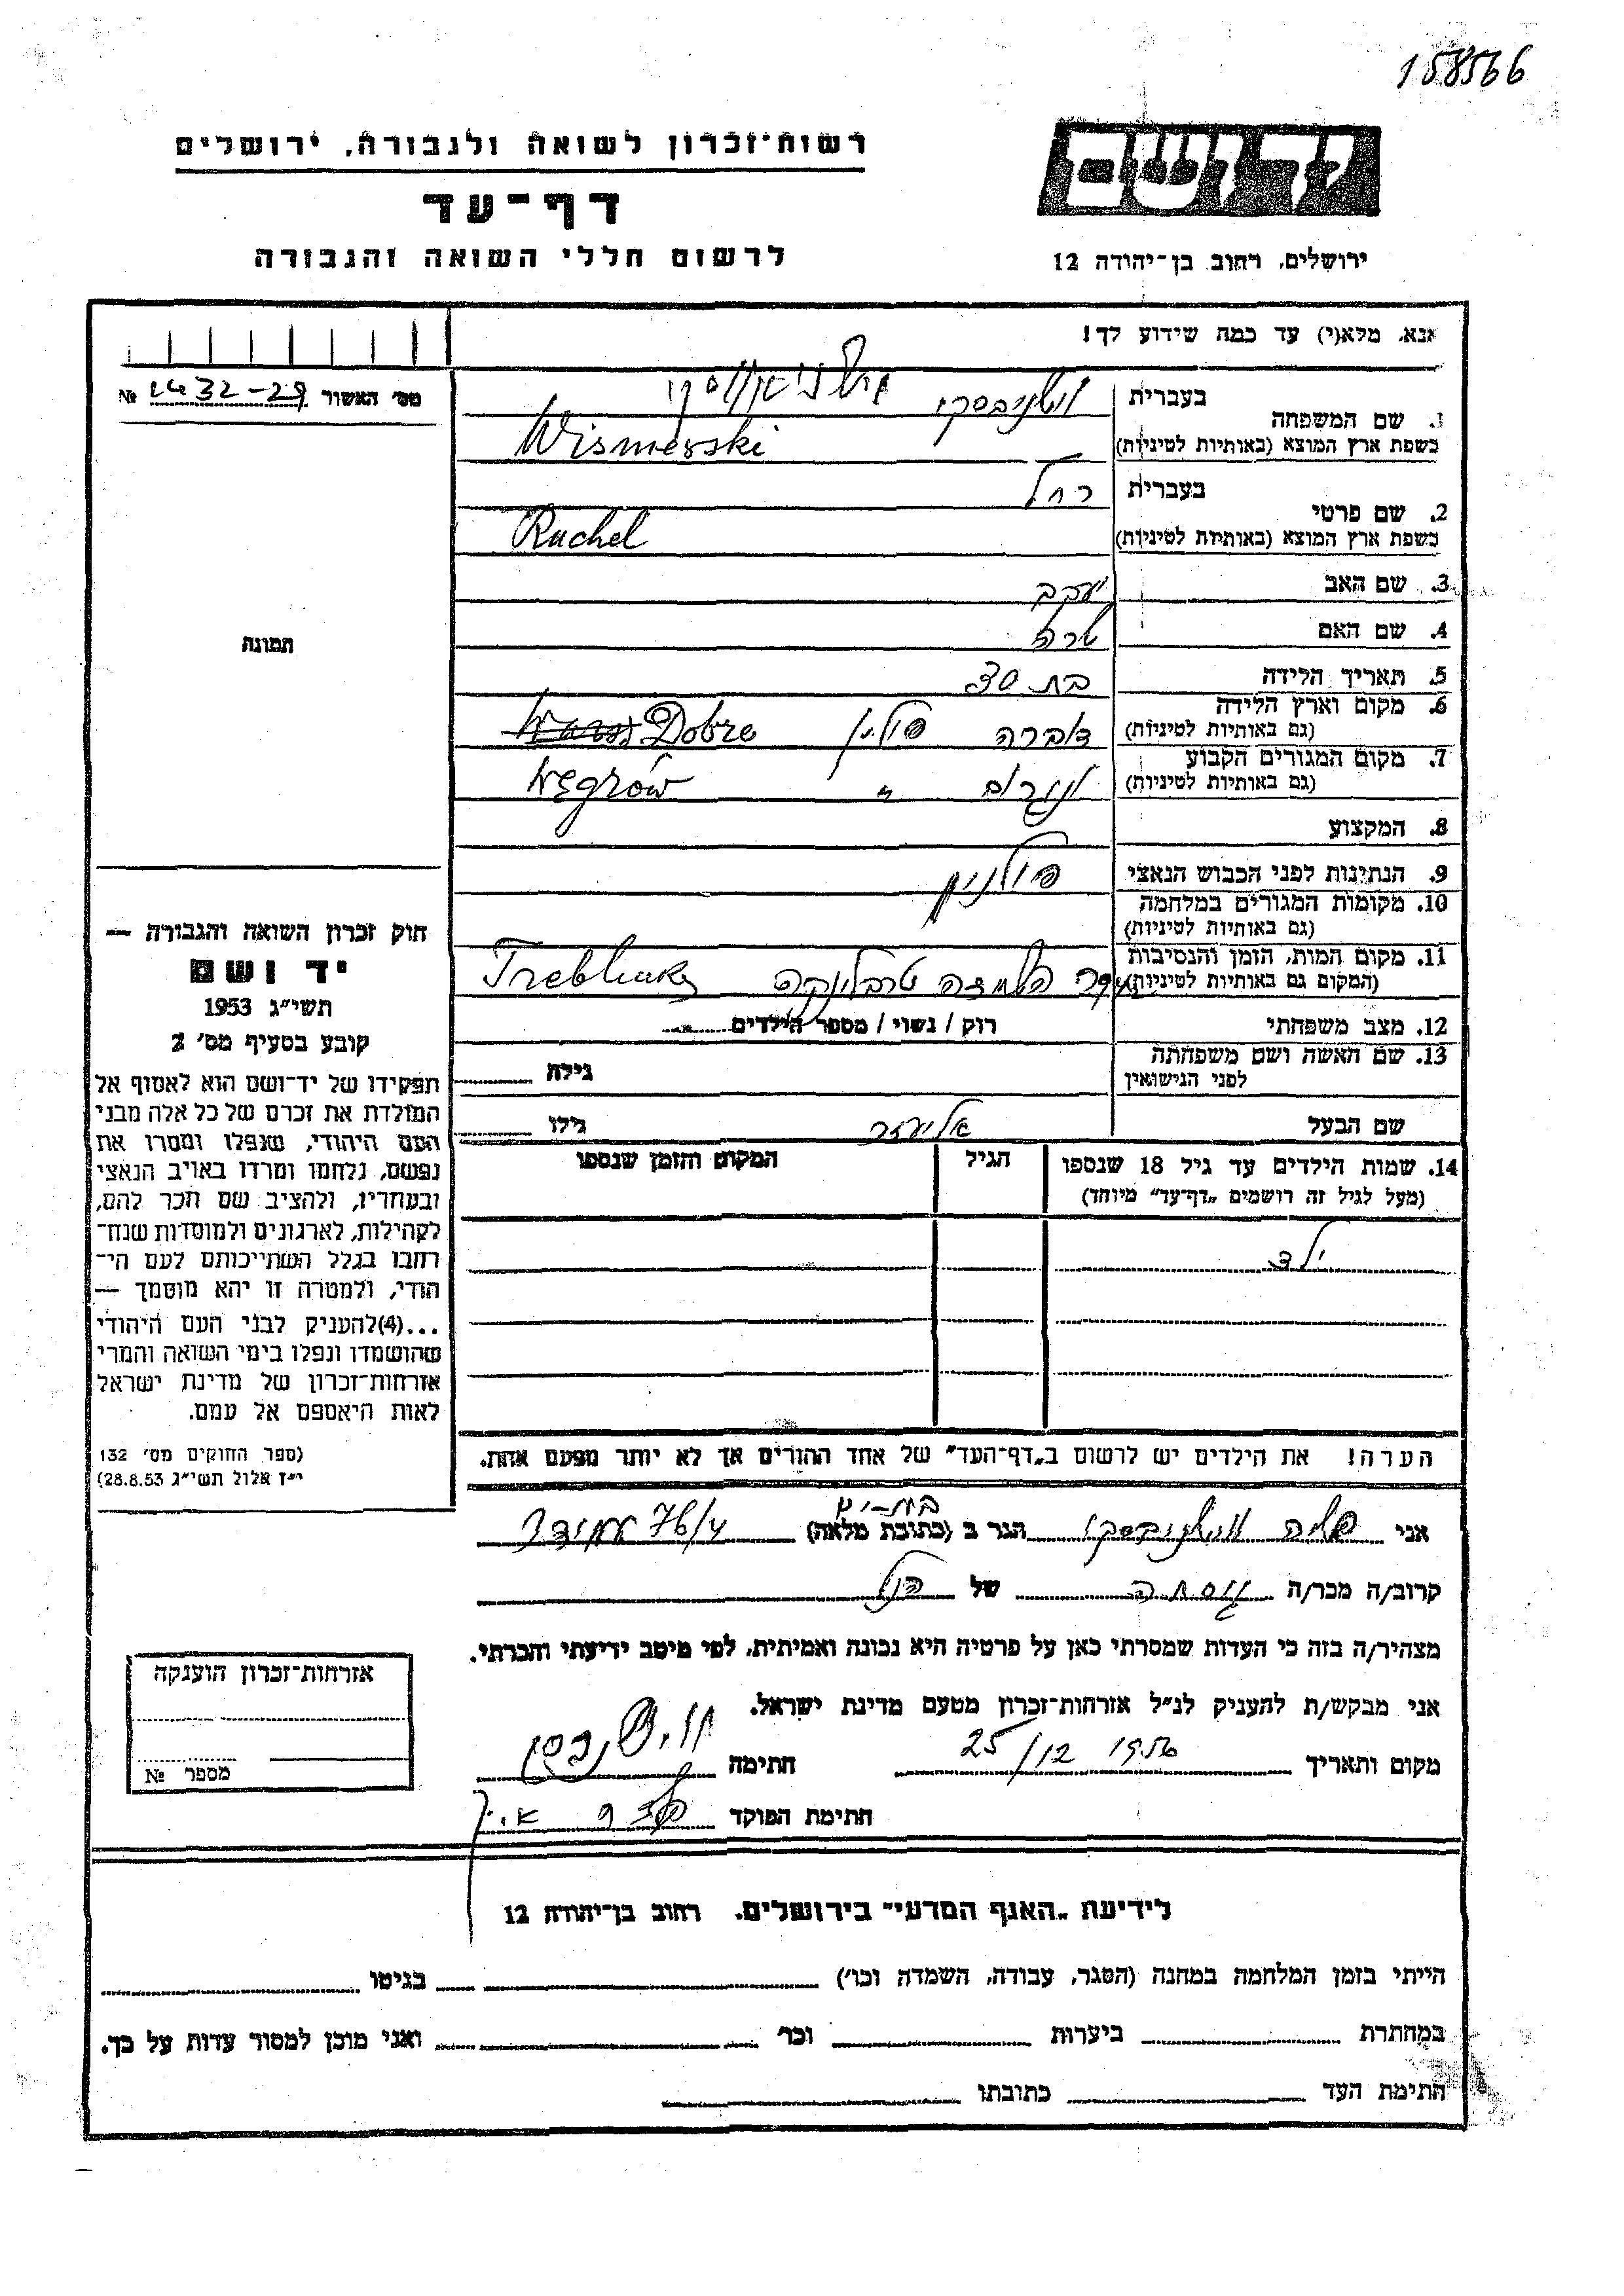 158566
רשות־זכרון לשואה ולגבורה, ירושלים
דף־עד
לרשום חללי השואה והגבורה
ירושלים, רחוב בן־יהודה 12
אנא, מלא(י) עד כמה שידוע לך!
מס׳ האשור 2432-29 №
1. שם המשפחה
בעברית ווישניבסקי
בשפת ארץ המוצא (באותיות לטיניות) Wisnievski
2. שם פרטי
בעברית רחל
בשפת ארץ המוצא (באותיות לטיניות) Ruchel
3. שם האב יעקב
4. שם האם שרה
5. תאריך הלידה בת 30
6. מקום וארץ הלידה
(גם באותיות לטיניות) דוברה פולין Dobre
7. מקום המגורים הקבוע
(גם באותיות לטיניות) ונגרוב " Węgrów
8. המקצוע
9. הנתינות לפני הכבוש הנאצי פולנית
10. מקומות המגורים במלחמה
(גם באותיות לטיניות)
11. מקום המות, הזמן והנסיבות
(המקום גם באותיות לטיניות) השמדה טרבלינקה Treblinka
12. מצב משפחתי רוק / נשוי / מספר הילדים
13. שם האשה ושם משפחתה
לפני הנישואין גילה
שם הבעל אליעזר גילו
14. שמות הילדים עד גיל 18 שנספו הגיל המקום והזמן שנספו
(מעל לגיל זה רושמים „דף־עד” מיוחד)
ילד
הערה! את הילדים יש לרשום ב„דף־העד” של אחד ההורים אך לא יותר מפעם אחת.
תמונה
חוק זכרון השואה והגבורה —
יד ושם
תשי״ג 1953
קובע בסעיף מס׳ 2
תפקידו של יד־ושם הוא לאסוף אל
המולדת את זכרם של כל אלה מבני
העם היהודי, שנפלו ומסרו את
נפשם, נלחמו ומרדו באויב הנאצי
ובעוזריו, ולהציב שם וזכר להם,
לקהילות, לארגונים ולמוסדות שנח־
רבו בגלל השתייכותם לעם הי־
הודי, ולמטרה זו יהא מוסמך —
...(4)להעניק לבני העם היהודי
שהושמדו ונפלו בימי השואה והמרי
אזרחות־זכרון של מדינת ישראל
לאות היאספם אל עמם.
(ספר החוקים מס׳ 132
י״ז אלול תשי״ג 28.8.53)
בת-ים
אני ווישניבסקי הגר ב (כתובת מלאה) 76/4 עמידר
קרוב/ה מכר/ה גיסתה של הנ"ל
מצהיר/ה בזה כי העדות שמסרתי כאן על פרטיה היא נכונה ואמיתית, לפי מיטב ידיעתי והכרתי.
אני מבקש/ת להעניק לנ״ל אזרחות־זכרון מטעם מדינת ישראל.
מקום ותאריך 25/12 1956 חתימה
חתימת הפוקד
אזרחות־זכרון הוענקה
מספר №
לידיעת „האגף המדעי” בירושלים. רחוב בן־יהודה 12
הייתי בזמן המלחמה במחנה (הסגר, עבודה, השמדה וכו׳) בגיטו
במחתרת ביערות וכו׳ ואני מוכן למסור עדות על כך.
חתימת העד כתובתו